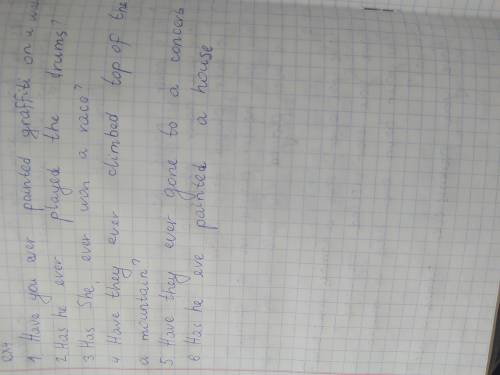 1 Have you ever painted graffiti on a
2 Has he ever played the drums?
3 Has She ever won a race?
4 Have they ever climbed top of the
a mountain?
5 Have they ever gone to a concert
6 Has he eve painted a house